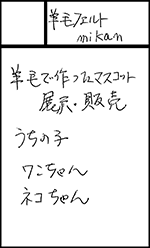 羊毛フェルト
mikan
羊毛で作ったマスコット
展示・販売
うちの子
ワンちゃん
ネコちゃん